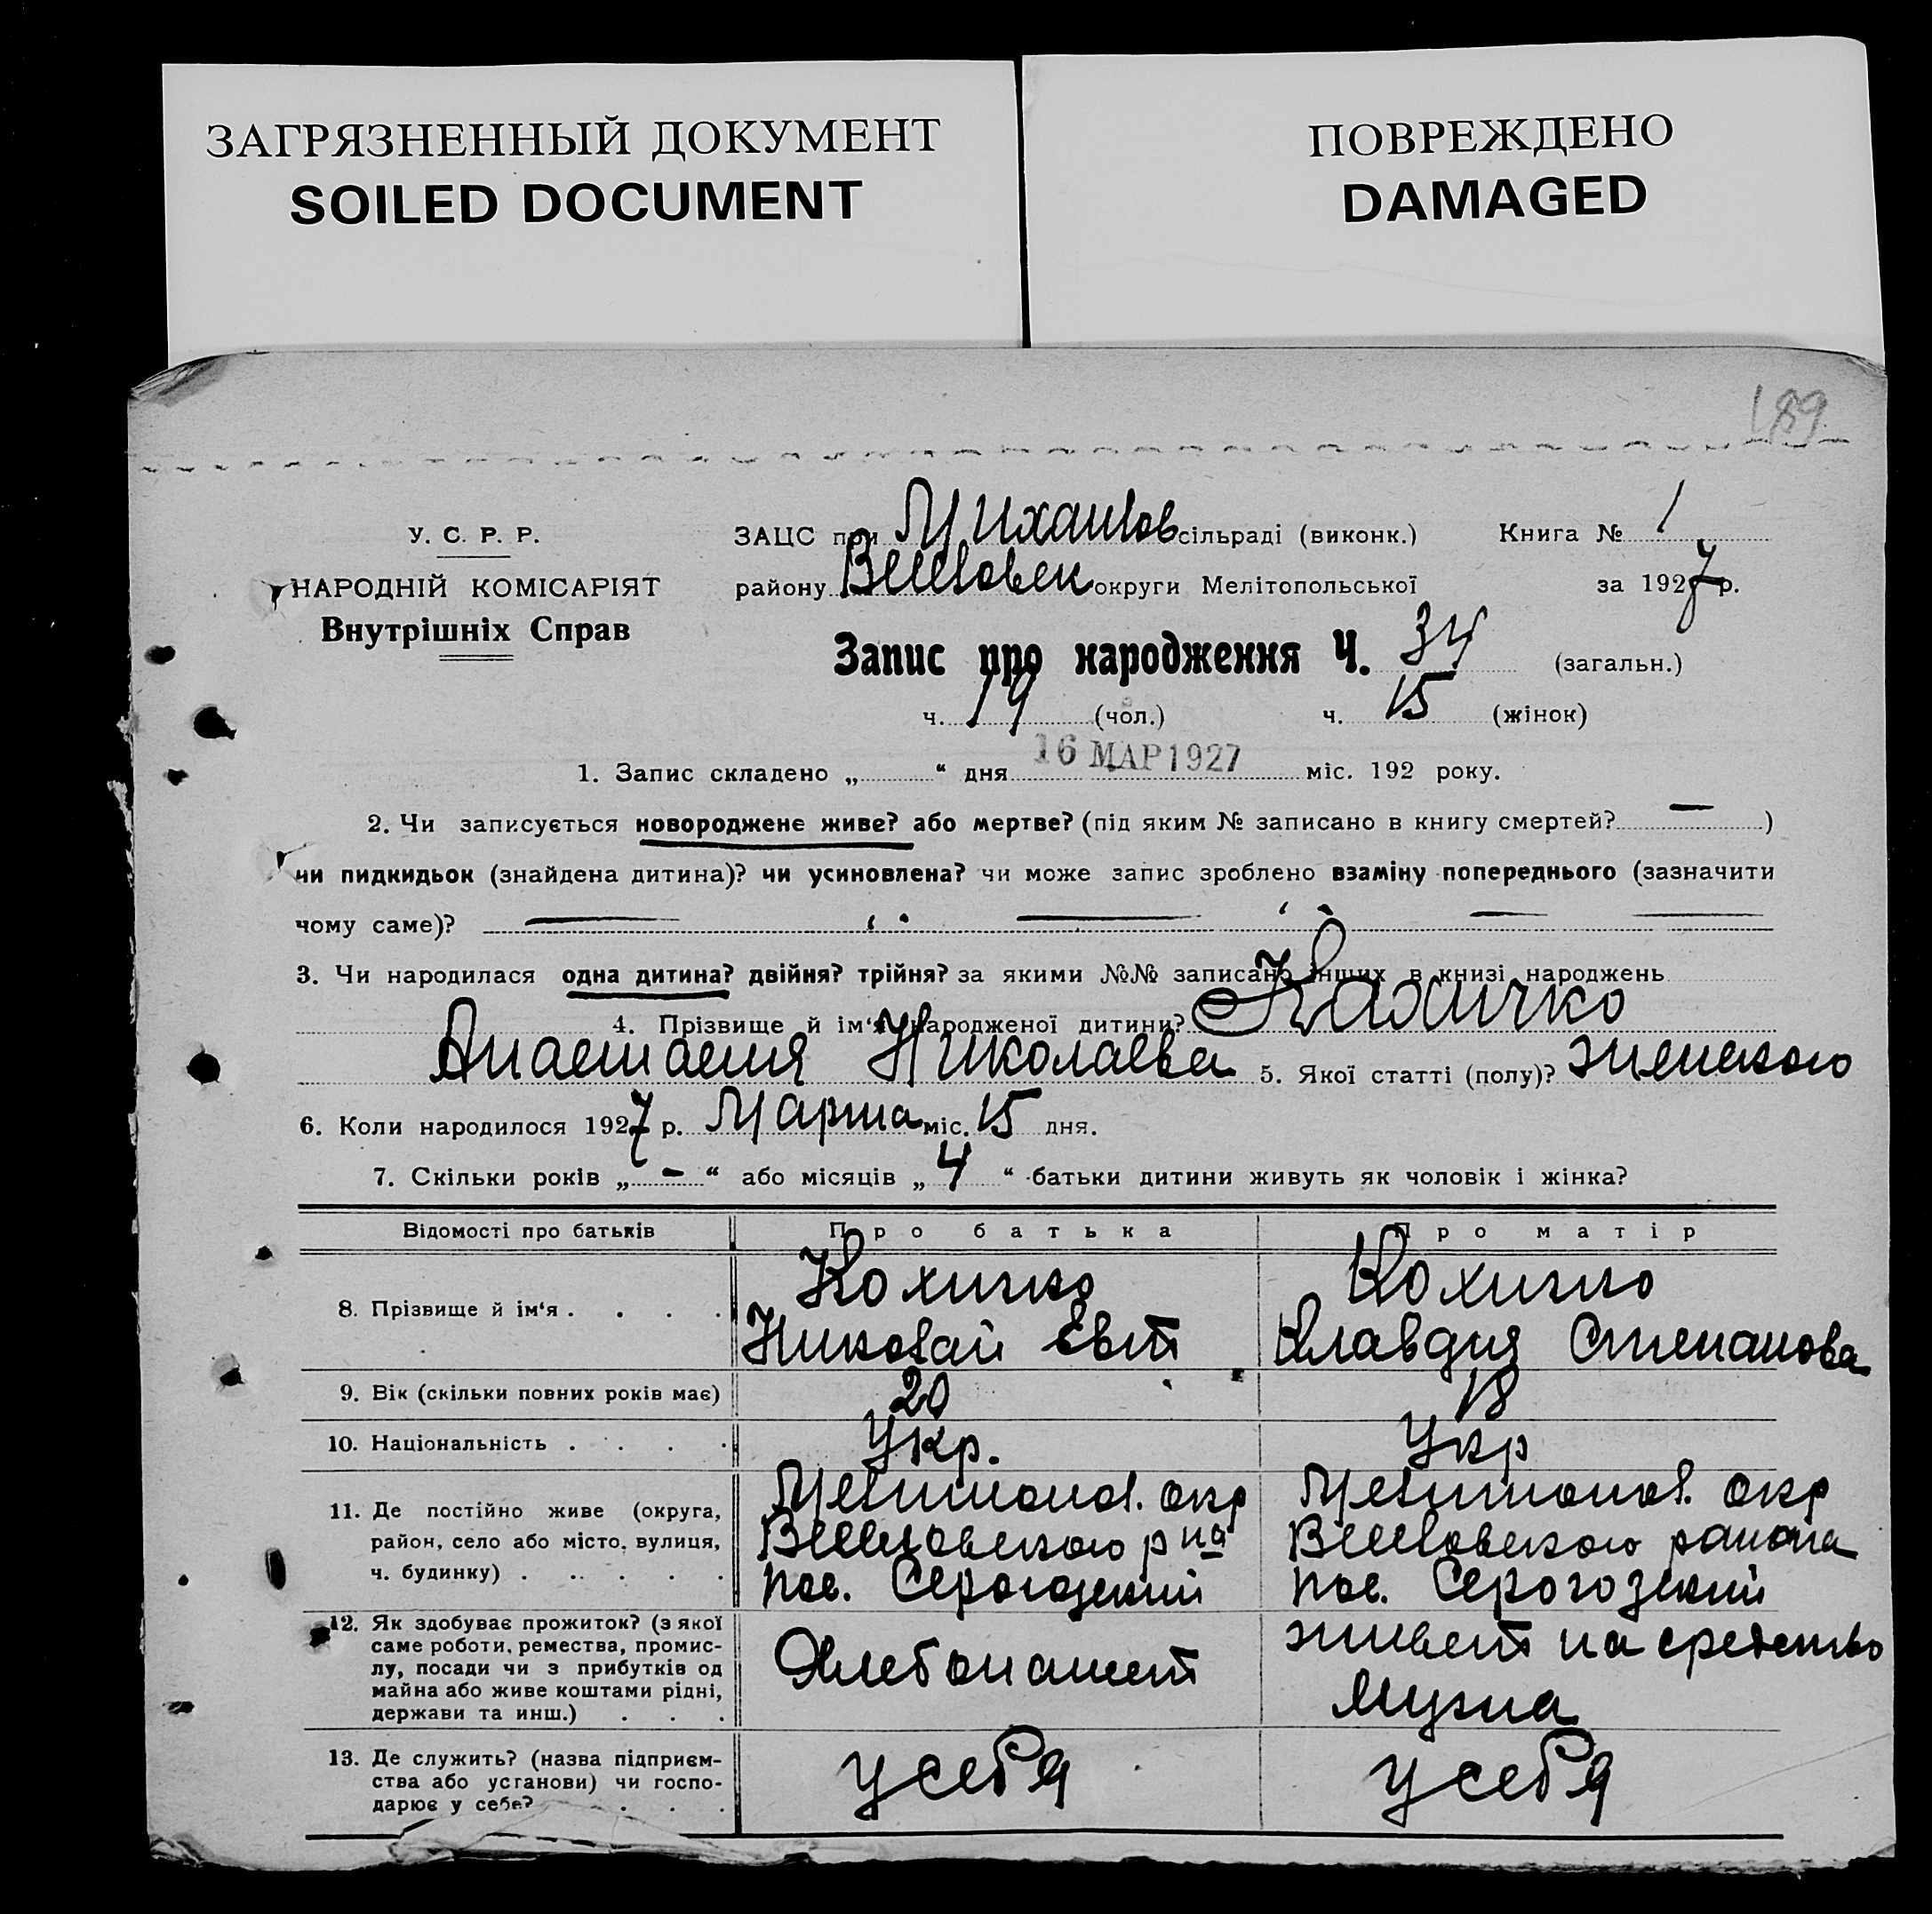 ЗАГРЯЗНЕННЫЙ ДОКУМЕНТ
SOILED DOCUMENT
ПОВРЕЖДЕНО
DAMAGED
189
У. С. Р. Р.
НАРОДНІЙ КОМІСАРІЯТ
Внутрішніх Справ
ЗАЦС при Михайлов сільраді (виконк.) Книга № 1
району Веселовск округи Мелітопольської за 1927 р.
Запис про народження Ч. 34 (загальн.)
ч. 19 (чол.) ч. 15 (жінок)
1. Запис складено „ “ дня 16 МАР 1927 міс. 192 року.
2. Чи записується новороджене живе? або мертве? (під яким № записано в книгу смертей? — )
чи пидкидьок (знайдена дитина)? чи усиновлена? чи може запис зроблено взаміну попереднього (зазначити
чому саме)? — — — —
3. Чи народилася одна дитина? двійня? трійня? за якими №№ записано інших в книзі народжень
4. Прізвище й ім‘я народженої дитини? Кохичко
Анастасия Николаева 5. Якої статті (полу)? женского
6. Коли народилося 1927 р. Марта міс. 15 дня.
7. Скільки років „ - “ або місяців „ 4 “ батьки дитини живуть як чоловік і жінка?
Відомості про батьків Про батька Про матір
8. Прізвище й ім‘я . . . . Кохичко Кохичко
Николай Евт Клавдия Степанова
9. Вік (скільки повних років має) 20 18
10. Національність . . . . Укр. Укр
11. Де постійно живе (округа, Мелитопол. окр Мелитопол. окр
район, село або місто, вулиця, Веселовского рна Веселовского района
ч. будинку) . . . . . пос. Серогозский пос. Серогозский
12. Як здобуває прожиток? (з якої
саме роботи, ремества, промис-
лу, посади чи з прибутків од
майна або живе коштами рідні,
держави та инш.) . . .
Хлебопашест
живет на средство
мужа
13. Де служить? (назва підприєм-
ства або установи) чи госпо-
дарює у себе? . . .
у себя у себя